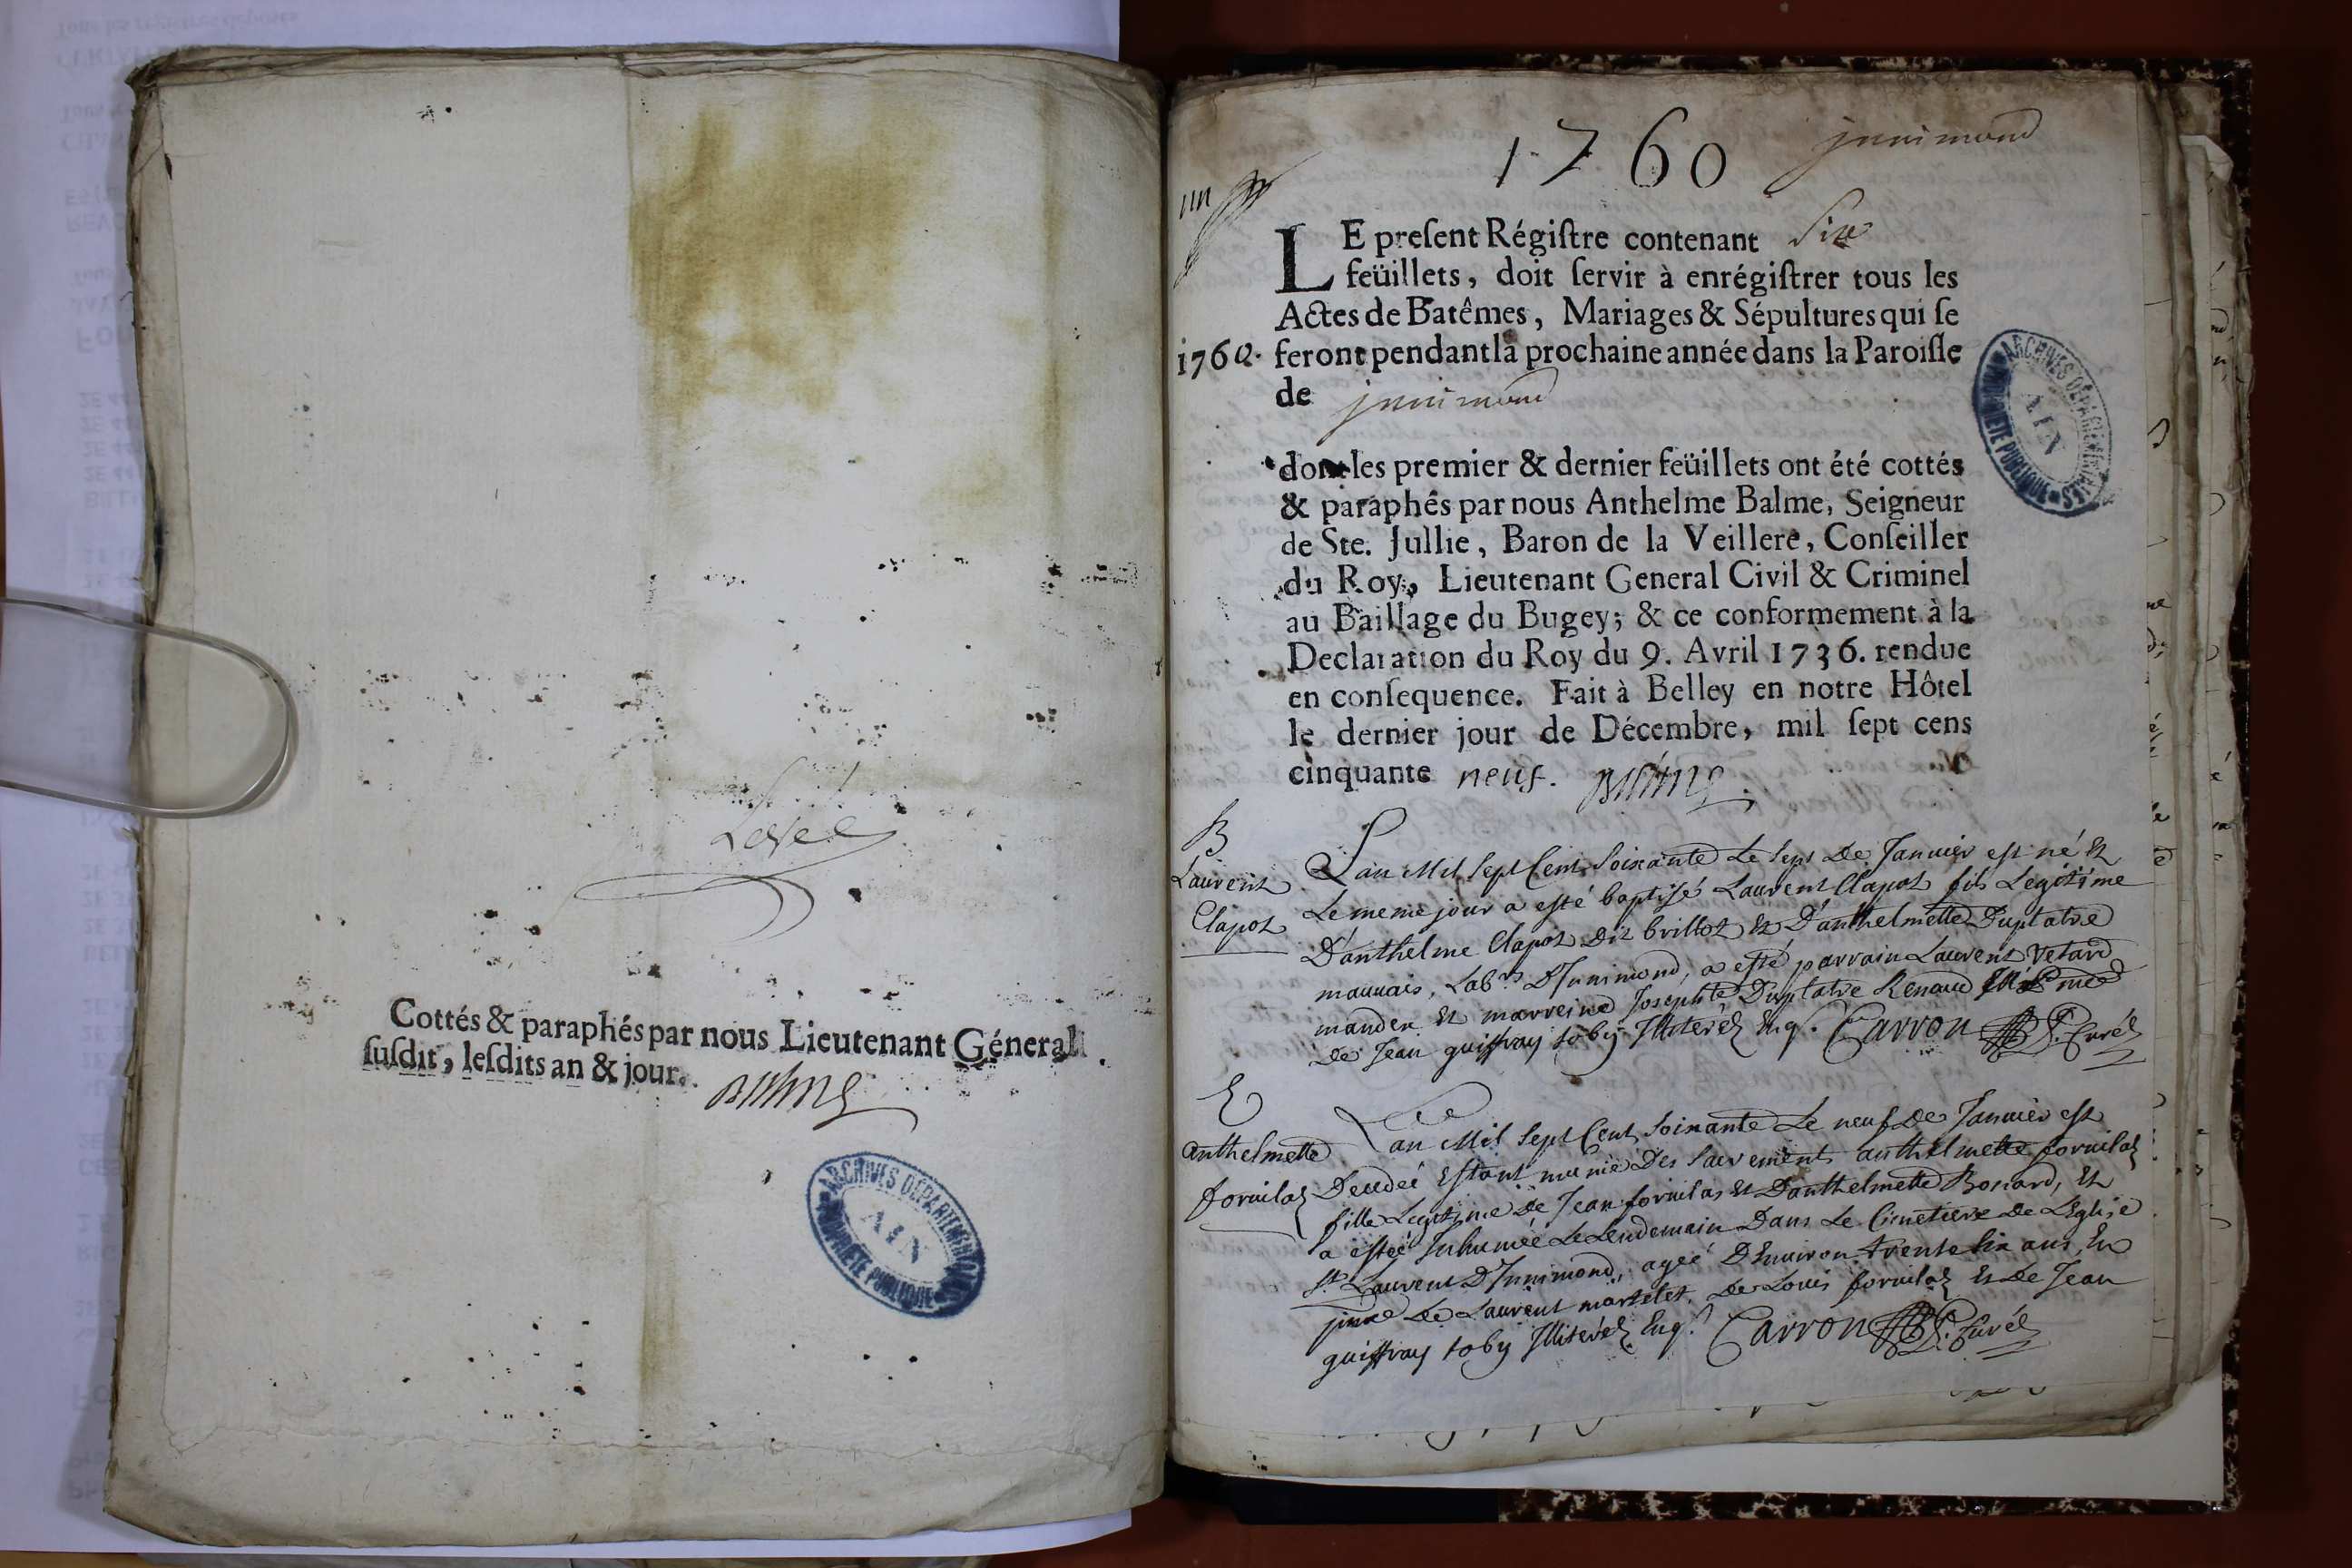 Cottés & paraphés par nous Lieutenant Géneral
ſuſdit, leſdits an & jour.
Balme
ARCHIVES DÉPARTEMENTALES
AIN
PROPRIÉTÉ PUBLIQUE
1760
jnnimond
un
LE preſent Régiſtre contenant Six
feüillets, doit ſervir à enrégiſtrer tous les
Actes de Batêmes, Mariages & Sépultures qui ſe
1760. feront pendant la prochaine année dans la Paroiſſe
de jnnimond
dont les premier & dernier feüillets ont été cottés
& paraphés par nous Anthelme Balme, Seigneur
de Ste. Jullie, Baron de la Veillere, Conſeiller
du Roy, Lieutenant General Civil & Criminel
au Baillage du Bugey; & ce conformement à la
Declaration du Roy du 9. Avril 1736. rendue
en conſequence. Fait à Belley en notre Hôtel
le dernier jour de Décembre, mil ſept cens
cinquante neuf. Balme
ARCHIVES DÉPARTEMENTALES
AIN
PROPRIÉTÉ PUBLIQUE
B
Laurent
Clapot
L'an Mil Sept Cent Soixante Le Sept De Janvier est né Et
Le meme jour a esté baptisé Laurent Clapot fils Legitime
D'anthelme Clapot Dit brillot Et D'anthelmette Duplatre
mauvais, Lab.rs D'Innimond, a esté parrain Laurent Vetard
mander Et marreine Josephte Duplatre Renaud
De Jean guiffray toby Illiterés Enq.s Carron Curé
E
anthelmette
forvilas
L'an Mil Sept Cent Soixante Le neuf De Janvier est
Decedéé Estant munie Des Sacrements anthelmette forvilas
fille Legitime De Jean forvilas Et D'anthelmette Bonard, Et
a estéé Inhuméé Le Lendemain Dans Le Cimetiere De L'Eglise
St. Laurent D'Innimond, agéé D'Environ trente six ans En
De Laurent martelet, De Louis forvilas Et De Jean
guiffray toby Illiterés Enq.s Carron Curé